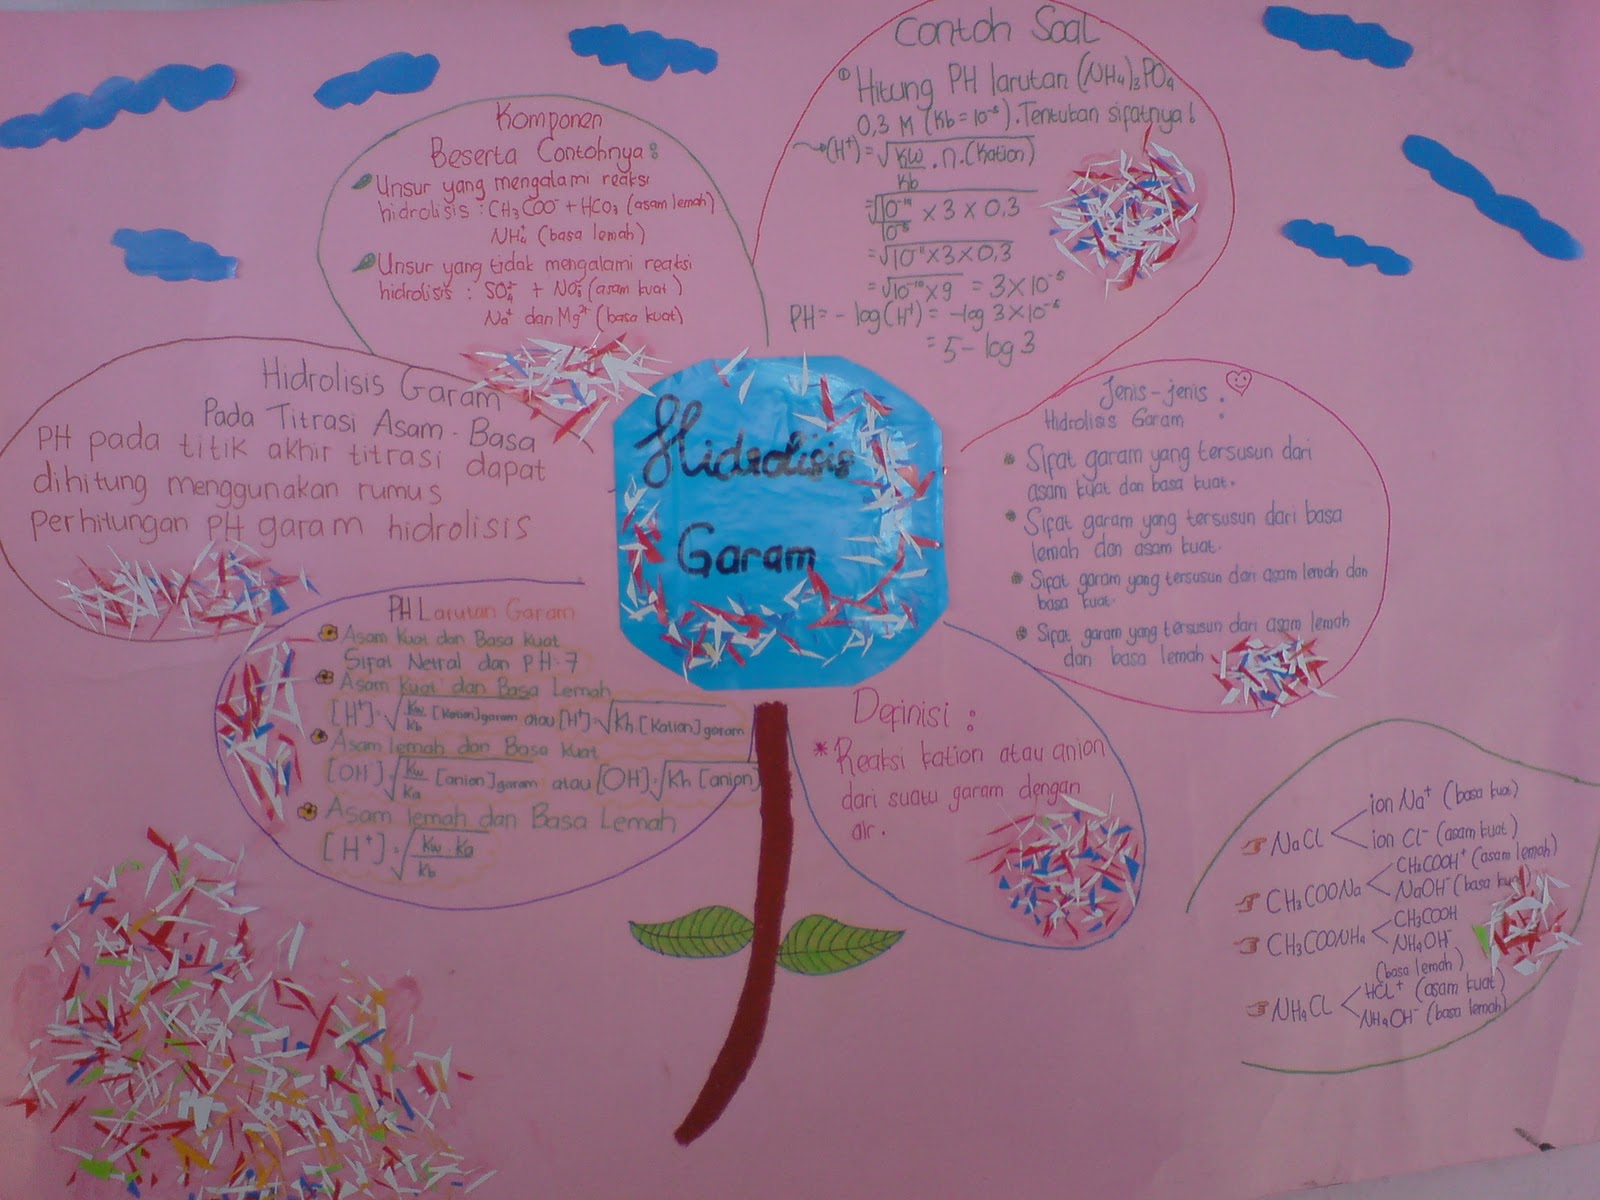 Hidrolisis
Garam
Contoh Soal
① Hitung PH larutan (NH₄)₃PO₄
0,3 M (Kb = 10⁻⁵). Tentukan sifatnya!
(H⁺) = √Kw/Kb . n. (Kation)
= √10⁻¹⁴/10⁻⁵ × 3 × 0,3
= √10⁻⁹ × 3 × 0,3
= √10⁻¹⁰ × 9 = 3 × 10⁻⁵
PH = - log (H⁺) = -log 3 × 10⁻⁵
= 5 - log 3
Komponen
Beserta Contohnya :
Unsur yang mengalami reaksi
hidrolisis : CH₃COO⁻ + HCO₃ (asam lemah)
NH₄⁺ (basa lemah)
Unsur yang tidak mengalami reaksi
hidrolisis : SO₄²⁻ + NO₃⁻ (asam kuat)
Na⁺ dan Mg²⁺ (basa kuat)
Hidrolisis Garam
Pada Titrasi Asam - Basa
PH pada titik akhir titrasi dapat
dihitung menggunakan rumus
perhitungan PH garam hidrolisis
PH Larutan Garam
Asam Kuat dan Basa Kuat
Sifat Netral dan PH = 7
Asam Kuat dan Basa Lemah
[H⁺] = √Kw/Kb [Kation] garam atau [H⁺] = √Kh [Kation] garam
Asam lemah dan Basa kuat
[OH⁻] = √Kw/Ka [anion] garam atau [OH⁻] = √Kh [anion]
Asam lemah dan Basa Lemah
[H⁺] = √Kw . Ka/Kb
Jenis - jenis
Hidrolisis Garam :
Sifat garam yang tersusun dari
asam kuat dan basa kuat.
Sifat garam yang tersusun dari basa
lemah dan asam kuat.
Sifat garam yang tersusun dari asam lemah dan
basa kuat.
Sifat garam yang tersusun dari asam lemah
dan basa lemah
Definisi :
* Reaksi kation atau anion
dari suatu garam dengan
air.
NaCl < ion Na⁺ (basa kuat)
ion Cl⁻ (asam kuat)
CH₃COONa < CH₃COOH⁺ (asam lemah)
NaOH⁻ (basa kuat)
CH₃COONH₄ < CH₃COOH
NH₄OH⁻
(basa lemah)
NH₄CL < HCL⁺ (asam kuat)
NH₄OH⁻ (basa lemah)